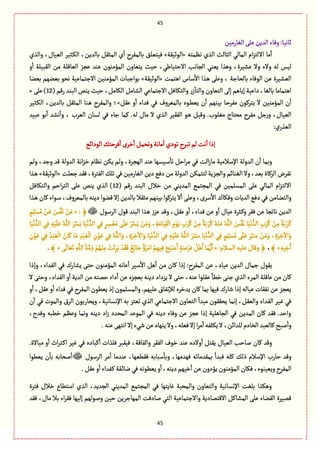 45
ثانيا: وفاء الدين على الغارمين
أما الالتزام المالي الثالث الذي نظمته «الوثيقة» فيتعلق بالمفرح أي المثقل بالدين، الكثير العيال، والذي
ليس له ولاء ولا عشيرة، وهذا يعني الجانب الاحتياطي، حيث يتعاون المؤمنون عند عجز العاقلة من القبيلة أو
العشيرة عن الوفاء بالحاجة، وعلى هذا الأساس اهتمت «الوثيقة» بواجبات المؤمنين الاجتماعية نحو بعضهم بعضا
اهتماما بالغا، داعية إياهم إلى التعاون والتآزر والتكافل الاجتماعي الشامل الكامل، حيث ينص البند رقم (12) على «
أن المؤمنين لا يتركون مفرحا بينهم أن يعطوه بالمعروف في فداء أو عقل»؛ والمفرح هنا المثقل بالدين، الكثير
العيال، ورجل مفرح محتاج مغلوب. وقيل هو الفقير الذي لا مال له. كما جاء في لسان العرب، وأنشد أبو عبيد
العذري:
إذا أنت لم تبرح تودي أمانة وتحمل أخرى أفرحتك الودائع
وبما أن الدولة الإسلامية مازالت في مراحل تأسيسها عند الهجرة، ولم يكن نظام خزانة الدولة قد وجد، ولم
تفرض الزكاة بعد، ولا الغنائم والجزية لتتمكن الدولة من دفع دين الغارمين في تلك الفترة، فقد جعلت «الوثيقة» هذا
الالتزام المالي على المسلمين في المجتمع المديني من خلال البند رقم (12) الذي ينص على التراحم والتكافل
والتضامن في دفع الديات وفكاك الأسرى، وعلى ألا يتركوا بينهم مثقلا بالدين إلا قضوا دينه بالمعروف، سواء كان هذا
الدين ناتجا عن فقر وكثرة عيال أو عن فداء، أو عقل، وقد عزز هذا البند قول الرسول ﷺ: ﴿ ‹ مَنْ نَفَّسَ عَنْ مُسْلِمٍ
يقول جمال الدين عياد، عن المفرح: إذا كان من أهل الأسير أعانه المؤمنون حتى يشارك في الفداء، وإذا
كان من عاقلة المرء الذي جنى خطأ عقلوا عنه، حتى لا يزداد دينه بعجزه عن أداء حصته من الدية أو الفداء، وحتى لا
يعجز عن نفقات عياله إذا شارك فيها بما كان يدخره للإنفاق عليهم. والمسلمون إذ يعطون المفرح في فداء أو عقل، أو
في غير الفداء والعقل، إنما يحققون مبدأ التعاون الاجتماعي الذي تعتز به الإنسانية، ويحاربون الرق والموت في آن
واحد. فقد كان المدين في الجاهلية إذا عجز عن وفاء دينه في الموعد المحدد زاد دينه ونما وعظم خطبه وفدح،
وأصبح كالعبد الخادم للدائن، لا يكلفه أمرا إلا فعله، ولا ينهاه عن شيء إلا انتهى عنه.
وقد كان صاحب العيال يقتل أولاده عند خوف الفقر والفاقة، فيقبر فلذات أكباده في غير اكتراث أو مبالاة.
وقد حارب الإسلام ذلك كله فبدأ بمقدماته فهدمها، وبأسبابه فقطعها، عندما أمر الرسول ﷺ أصحابه بأن يعطوا
المفرح ويعينوه، فكان المؤمنون يؤدون عن أخيهم دينه، أو يعطونه في ضائقة كفداء أو عقل.
وهكذا بلغت الإنسانية والتعاون والمحبة غايتها في المجتمع المديني الجديد، الذي استطاع خلال فترة
قصيرة القضاء على المشاكل الاقتصادية والاجتماعية التي صادفت المهاجرين حين وصولهم إليها فقراء بلا مال، فقد
45